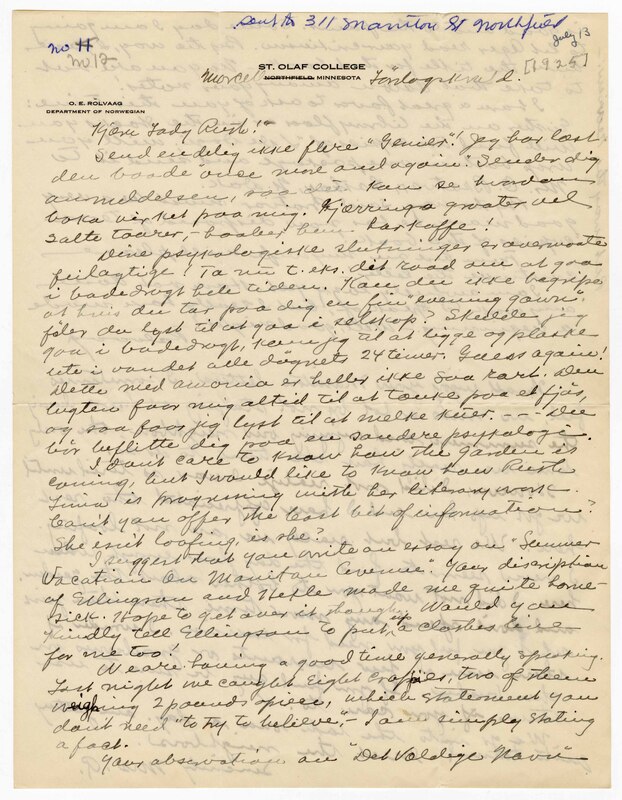 sent to 311 Manitou St Northfield
no 11
no 12
July 13
[1925]
ST. OLAF COLLEGE
NORTHFIELD, MINNESOTA
Marcell
O. E. ROLVAAG
DEPARTMENT OF NORWEGIAN
Kjære Lady Ruth!
Send endelig ikke flere "Genier"! Jeg har læst
den baade once more and again. Sender dig
anmeldelsen, saa du kan se hvordan
boka virket paa mig. Kjærringa graater vel
salte taarer, – haaber hun har kaffe!
Dine psykologiske slutninger er overmaate
feilagtige! Ta nu t. eks. dit raad om at gaa
i badedragt hele tiden. Kan du ikke begripe
at hvis du tar paa dig en fin "evening gown"
føler du lyst til at gaa i selskap? Skulde jeg
gaa i badedragt, kom jeg til at ligge og plaske
ute i vandet alle døgnets 24 timer. Guess again!
Dette med amonia er heller ikke saa rart. Den
lugten faar mig altid til at tænke paa et fjøs,
og saa faar jeg lyst til at melke kuer. – – – Du
bør beflitte dig paa en sandere psykologi.
I don't care to know how the garden is
coming, but I would like to know how Ruth
Lima is progressing with her literary work.
Can't you offer the least bit of information?
She isn't loafing, is she?
I suggest that you write an essay on "Summer
Vacation On Manitou Avenue". Your discription
of Ellingson and Hefle made me quite home-
sick. Hope to get over it though. Would you
kindly tell Ellingson to put up a clothes line
for me too!
We are having a good time generally speaking.
Last night we caught Eight Crappies, two of them
weighing 2 pounds apiece, which statement you
don't need "to try to believe", – I am simply stating
a fact.
Your observation on "Det Valdige Navn"